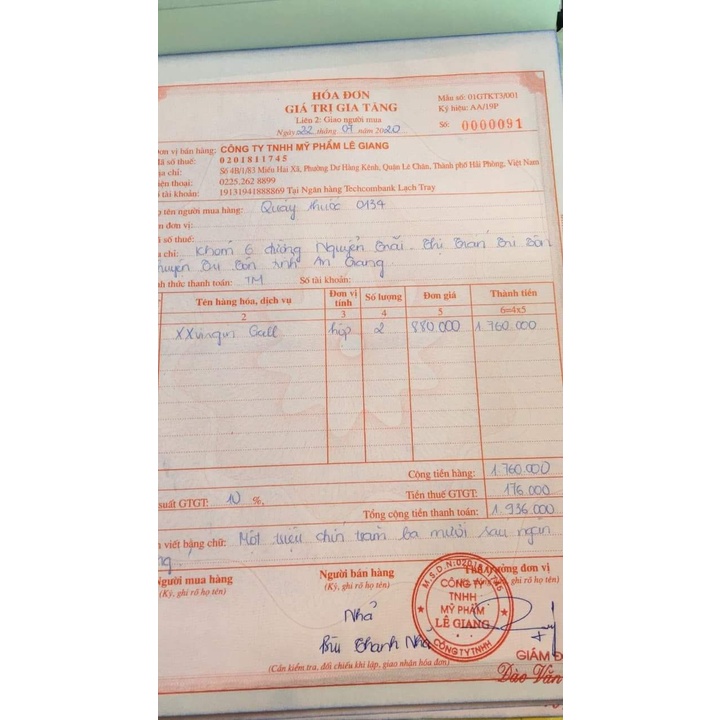 HÓA ĐƠN
GIÁ TRỊ GIA TĂNG
Liên 2: Giao người mua
Ngày 22 tháng 01 năm 2020
Mẫu số: 01GTKT3/001
Ký hiệu: AA/19P
Số: 0000091
ơn vị bán hàng: CÔNG TY TNHH MỸ PHẨM LÊ GIANG
ã số thuế: 0201811745
ịa chỉ: Số 4B/1/83 Miếu Hai Xã, Phường Dư Hàng Kênh, Quận Lê Chân, Thành phố Hải Phòng, Việt Nam
iện thoại: 0225.262 8899
ố tài khoản: 19131941888869 Tại Ngân hàng Techcombank Lạch Tray
ọ tên người mua hàng: Quầy thuốc 0134
n đơn vị:
ã số thuế:
a chỉ: Khóm 6 đường Nguyễn Trãi. Thị Trấn Tri Tôn
huyện Tri Tôn tỉnh An Giang
nh thức thanh toán: TM Số tài khoản:
Tên hàng hóa, dịch vụ Đơn vị tính Số lượng Đơn giá Thành tiền
2 3 4 5 6=4x5
XXvirgin Gall hộp 2 880.000 1.760.000
Cộng tiền hàng: 1.760.000
suất GTGT: 10 %, Tiền thuế GTGT: 176.000
Tổng cộng tiền thanh toán: 1.936.000
n viết bằng chữ: Một triệu chín trăm ba mươi sáu ngàn
Người mua hàng Người bán hàng Thủ trưởng đơn vị
(Ký, ghi rõ họ tên) (Ký, ghi rõ họ tên) ghi rõ họ tên)
M.S.D.N:0201811745
CÔNG TY
TNHH
MỸ PHẨM
LÊ GIANG
CÔNG TY TNHH
Nhả
Bùi Thanh Nhả
GIÁM Đ
Đào Văn
(Cần kiểm tra, đối chiếu khi lập, giao nhận hóa đơn)